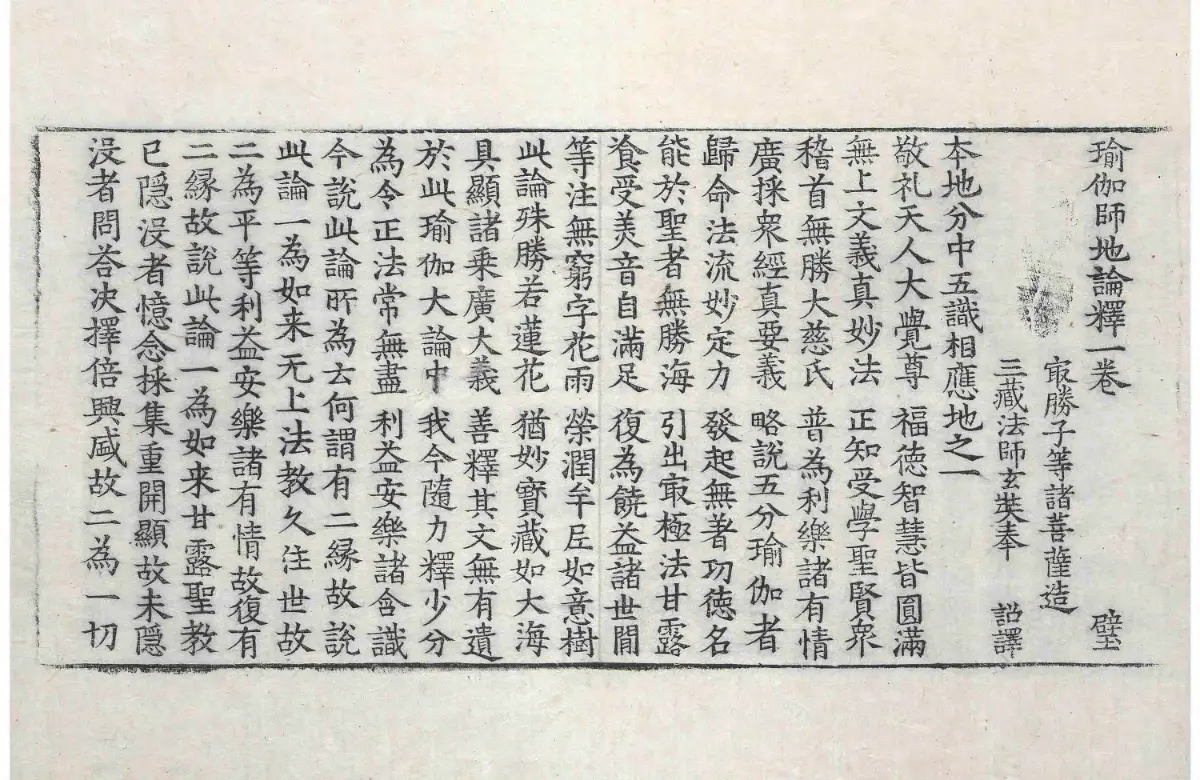 瑜伽師地論釋一卷 璧
最勝子等諸菩薩造
三藏法師玄奘奉 詔譯
本地分中五識相應地之一
敬礼天人大覺尊 福德智慧皆圓滿
無上文義真妙法 正知受學聖賢衆
稽首無勝大慈氏 普為利樂諸有情
廣採衆經真要義 略說五分瑜伽者
歸命法流妙定力 發起無著功德名
能於聖者無勝海 引出㝡極法甘露
飡受美音自滿足 復為饒益諸世間
等注無窮字花雨 榮潤牟尼如意樹
此論殊勝若蓮花 猶妙寶藏如大海
具顯諸乗廣大義 善釋其文無有遺
於此瑜伽大論中 我今隨力釋少分
為令正法常無盡 利益安樂諸含識
今說此論所為云何謂有二緣故說
此論一為如来无上法教久住世故
二為平等利益安樂諸有情故復有
二緣故說此論一為如来甘露聖教
已隱没者憶念採集重開顯故未隱
没者問荅决擇倍興盛故二為一切